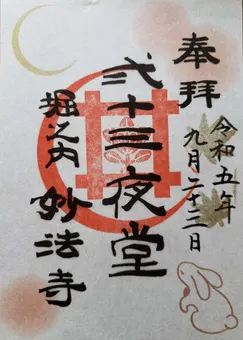 奉拝
令和五年
九月二十三日
弐十三夜堂
堀之内
妙法寺